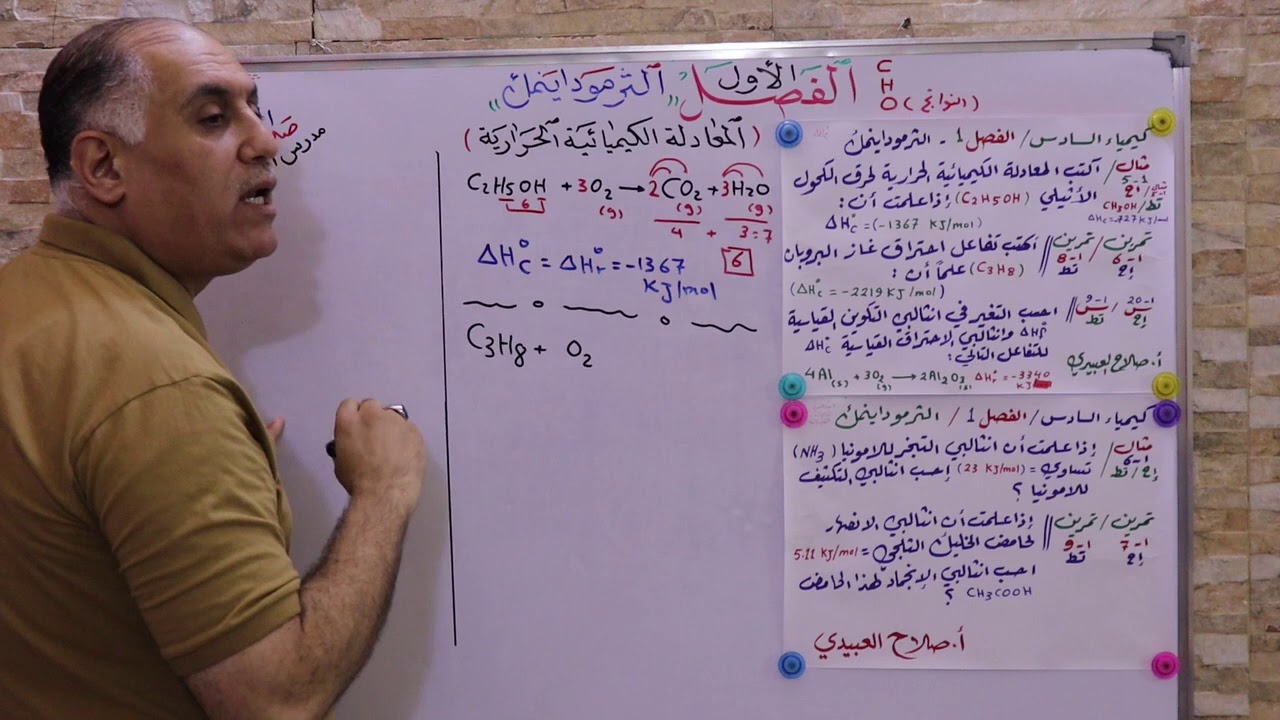 الفصل الأول "الثرموداينمك"
C
H
O (النواتج)
مدرس
(المعادلة الكيميائية الحرارية)
C2H5OH + 3O2 → 2CO2 + 3H2O
6 (g) (g) (g)
4 + 3 = 7
ΔH°c = ΔH°r = -1367 KJ/mol
6
C3H8 + O2
كيمياء السادس / الفصل 1 - الثرموداينمك
مثال 1-5 / اكتب المعادلة الكيميائية الحرارية لحرق الكحول
الأثيلي (C2H5OH) إذا علمت أن :
CH3OH
ΔHc = -727 KJ/mol
ΔH°c = (-1367 KJ/mol)
تمرين 1-6 إح / تمرين 1-8 تط // اكتب تفاعل احتراق غاز البروبان
(C3H8) علماً أن :
(ΔH°c = -2219 KJ/mol)
س 1-20 إح / س 1-9 تط // احسب التغير في انثالبي التكوين القياسية
ΔH°f وانثالبي الاحتراق القياسية ΔH°c
للتفاعل التالي :
أ. صلاح العبيدي
4Al(s) + 3O2(g) → 2Al2O3(s) ΔH°r = -3340 KJ
كيمياء السادس / الفصل 1 / الثرموداينمك
مثال 1-6 إح / تط / إذا علمت أن انثالبي التبخر للامونيا (NH3)
تساوي = (23 KJ/mol) إحسب انثالبي التكثيف
للامونيا ؟
تمرين 1-7 إح / تمرين 1-9 تط // إذا علمت أن انثالبي الانصهار
لحامض الخليك الثلجي = 5.11 KJ/mol
احسب انثالبي الإنجماد لهذا الحامض
CH3COOH ؟
أ. صلاح العبيدي